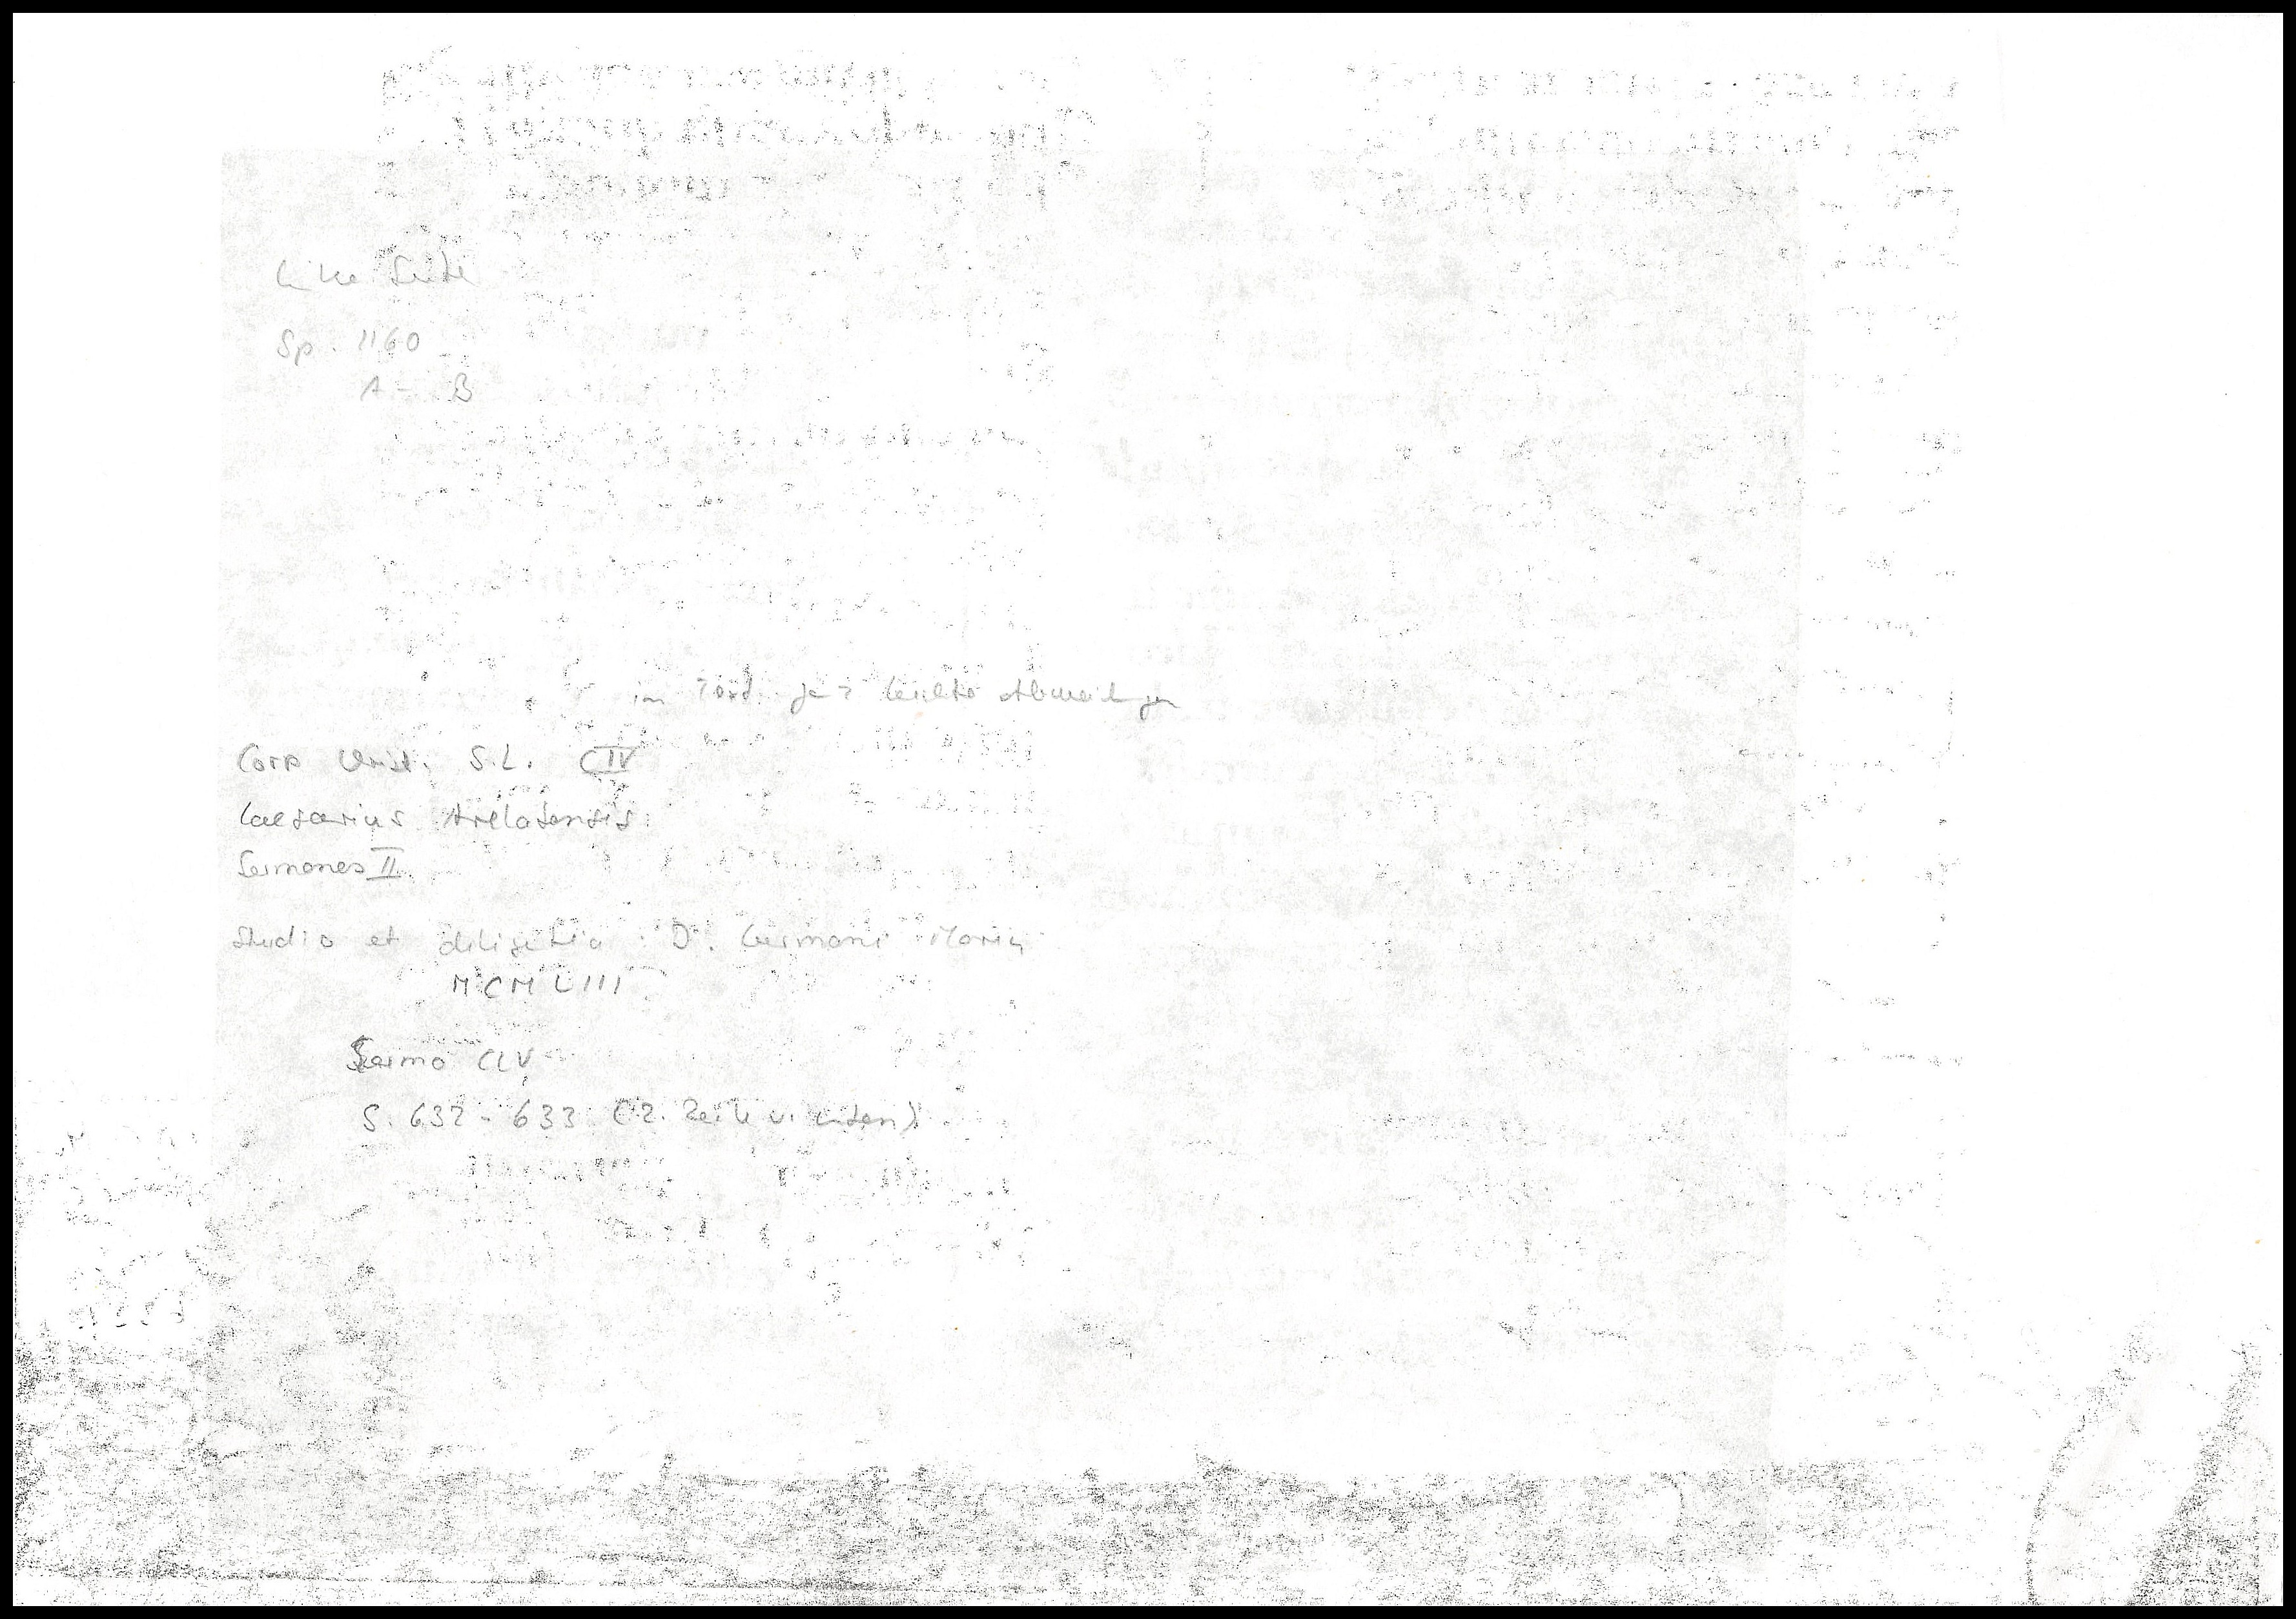 Linke Seite
Sp. 1160
A - B
im Text ganz leichte Abweichungen
Corp Christ. S.L. CIV
Caesarius Arelatensis
Sermones II
Studio et diligentia D. Germani Morin
MCMLIII
Sermo CLV
S. 632 - 633 (2. Zeile v. unten)